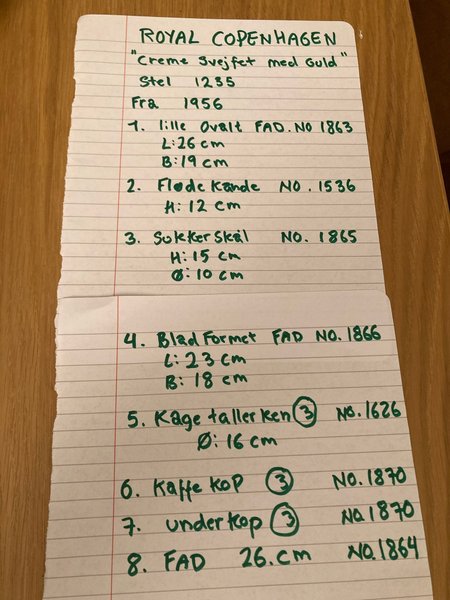 ROYAL COPENHAGEN
"Creme Svejfet med Guld"
Stel 1235
Fra 1956
1. lille Ovalt FAD. NO 1863
L:26 cm
B:19 cm
2. Fløde Kande NO. 1536
H: 12 cm
3. Sukker Skål NO. 1865
H: 15 cm
Ø: 10 cm
4. Blad Formet FAD NO. 1866
L: 23 cm
B: 18 cm
5. Kage tallerken 3 NO. 1626
Ø: 16 cm
6. Kaffe KoP 3 NO. 1870
7. underkop 3 NO. 1870
8. FAD 26. cm NO. 1864